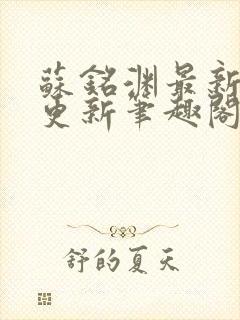 蘇銘淵最新
更新筆趣閣
舒的夏天